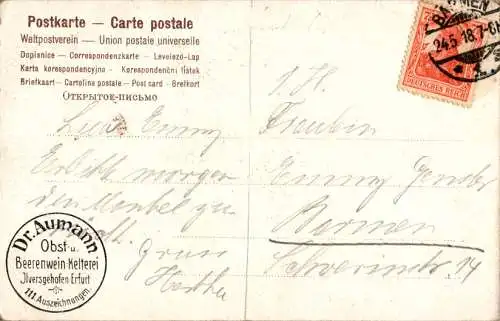 Postkarte — Carte postale
Weltpostverein — Union postale universelle
Dopisnice - Correspondenzkarte - Levelező-Lap
Karta korespondencyjna - Korespondenční lístek
Briefkaart - Cartolina postale - Post card - Brefkort
Открытое-письмо
BARMEN
24.5.18.7-8
DEUTSCHES REICH
Liebe Emmy
morgen
den Mantel zu
Gruss
Hertha
Fräulein
Emmy
Barmen
Schwerinstr. 14
Dr. Aumann
Obst- u.
Beerenwein-Kelterei
Ilversgehofen-Erfurt
111 Auszeichnungen.